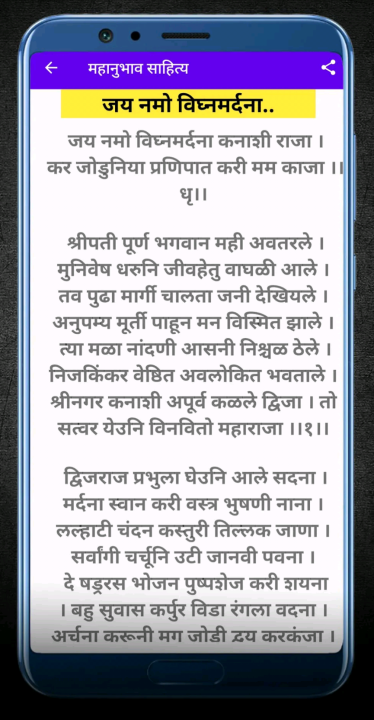 महानुभाव साहित्य
जय नमो विघ्नमर्दना..
जय नमो विघ्नमर्दना कनाशी राजा ।
कर जोडुनिया प्रणिपात करी मम काजा ।।
धृ।।
श्रीपती पूर्ण भगवान मही अवतरले ।
मुनिवेष धरुनि जीवहेतु वाघळी आले ।
तव पुढा मार्गी चालता जनी देखियले ।
अनुपम्य मूर्ती पाहून मन विस्मित झाले ।
त्या मळा नांदणी आसनी निश्चळ ठेले ।
निजकिंकर वेष्ठित अवलोकित भवताले ।
श्रीनगर कनाशी अपूर्व कळले द्विजा । तो
सत्वर येउनि विनवितो महाराजा ।।१।।
द्विजराज प्रभुला घेउनि आले सदना ।
मर्दना स्वान करी वस्त्र भुषणी नाना ।
लल्हाटी चंदन कस्तुरी तिल्लक जाणा ।
सर्वांगी चर्चूनि उटी जानवी पवना ।
दे षड्ररस भोजन पुष्पशेज करी शयना
। बहु सुवास कर्पुर विडा रंगला वदना ।
अर्चना करूनी मग जोडी द्वय करकंजा ।